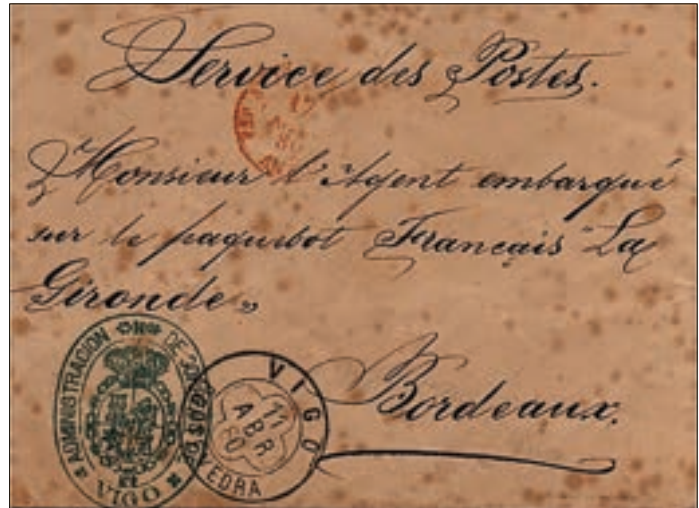 Service des Postes.
Monsieur l'Agent embarqué
sur le paquebot Français "La
Gironde"
Bordeaux.
ADMINISTRACION DE CORREOS
VIGO
VIGO
11
ABR
80
VEDRA